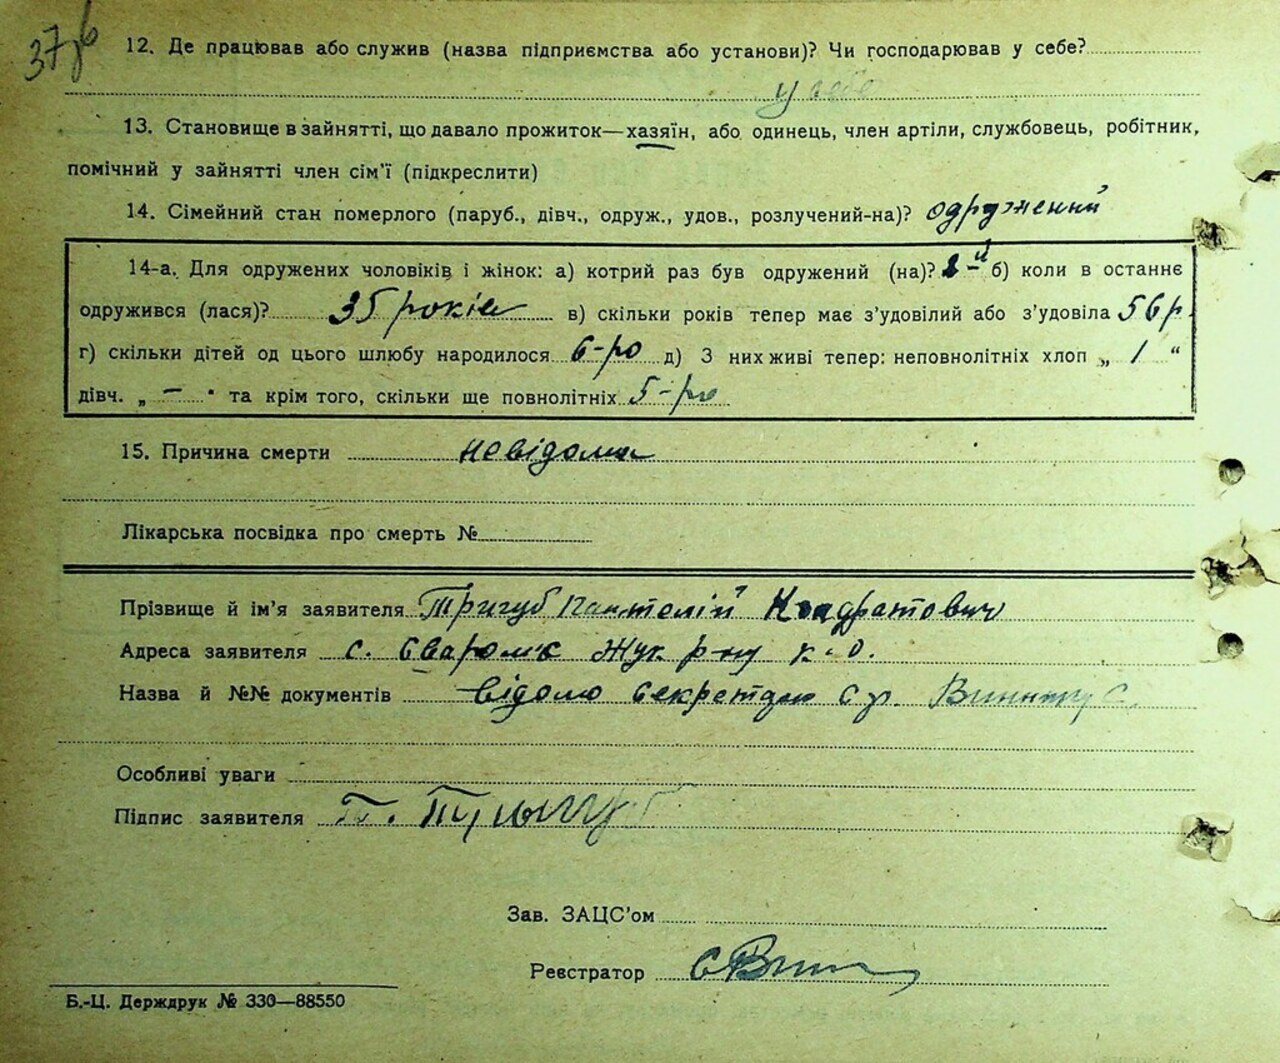 37зб
12. Де працював або служив (назва підприємства або установи)? Чи господарював у себе?
у себе
13. Становище в зайнятті, що давало прожиток—хазяїн, або одинець, член артіли, службовець, робітник,
помічний у зайнятті член сім'ї (підкреслити)
14. Сімейний стан померлого (паруб., дівч., одруж., удов., розлучений-на)? одружений
14-а. Для одружених чоловіків і жінок: а) котрий раз був одружений (на)? б) коли в останнє
одружився (лася)? 35 років в) скільки років тепер має з'удовілий або з'удовіла 56 р.
г) скільки дітей од цього шлюбу народилося 6-ро д) З них живі тепер: неповнолітніх хлоп „ 1 “
дівч. „ — “ та крім того, скільки ще повнолітніх 5-ро
15. Причина смерти невідома
Лікарська посвідка про смерть №
Прізвище й ім'я заявителя Тригуб Пантелій Кондратович
Адреса заявителя с. Сваром'є Жук р-ну К.О.
Назва й №№ документів відомо секретарю с/р.
Особливі уваги
Підпис заявителя П. Тригуб
Зав. ЗАЦС'ом
Реєстратор
Б.-Ц. Держдрук № 330—88550